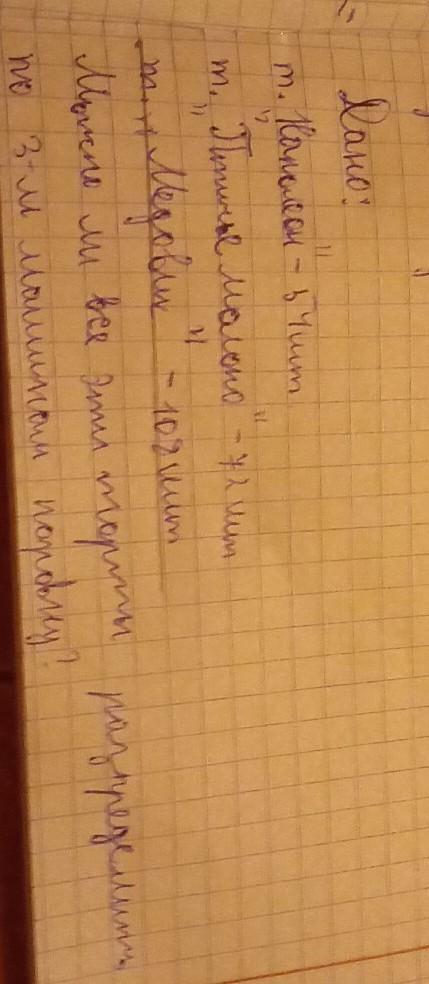 Дано:
т. "Наполеон" - 54 шт
т. "Птичье молоко" - 72 шт
т. "Медовик" - 108 шт
Можно ли все эти торты разпределить
по 3-м машинам поровну?